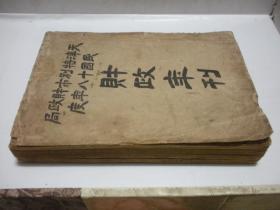 天津特別市財政局
民國十八年度
財政年刊